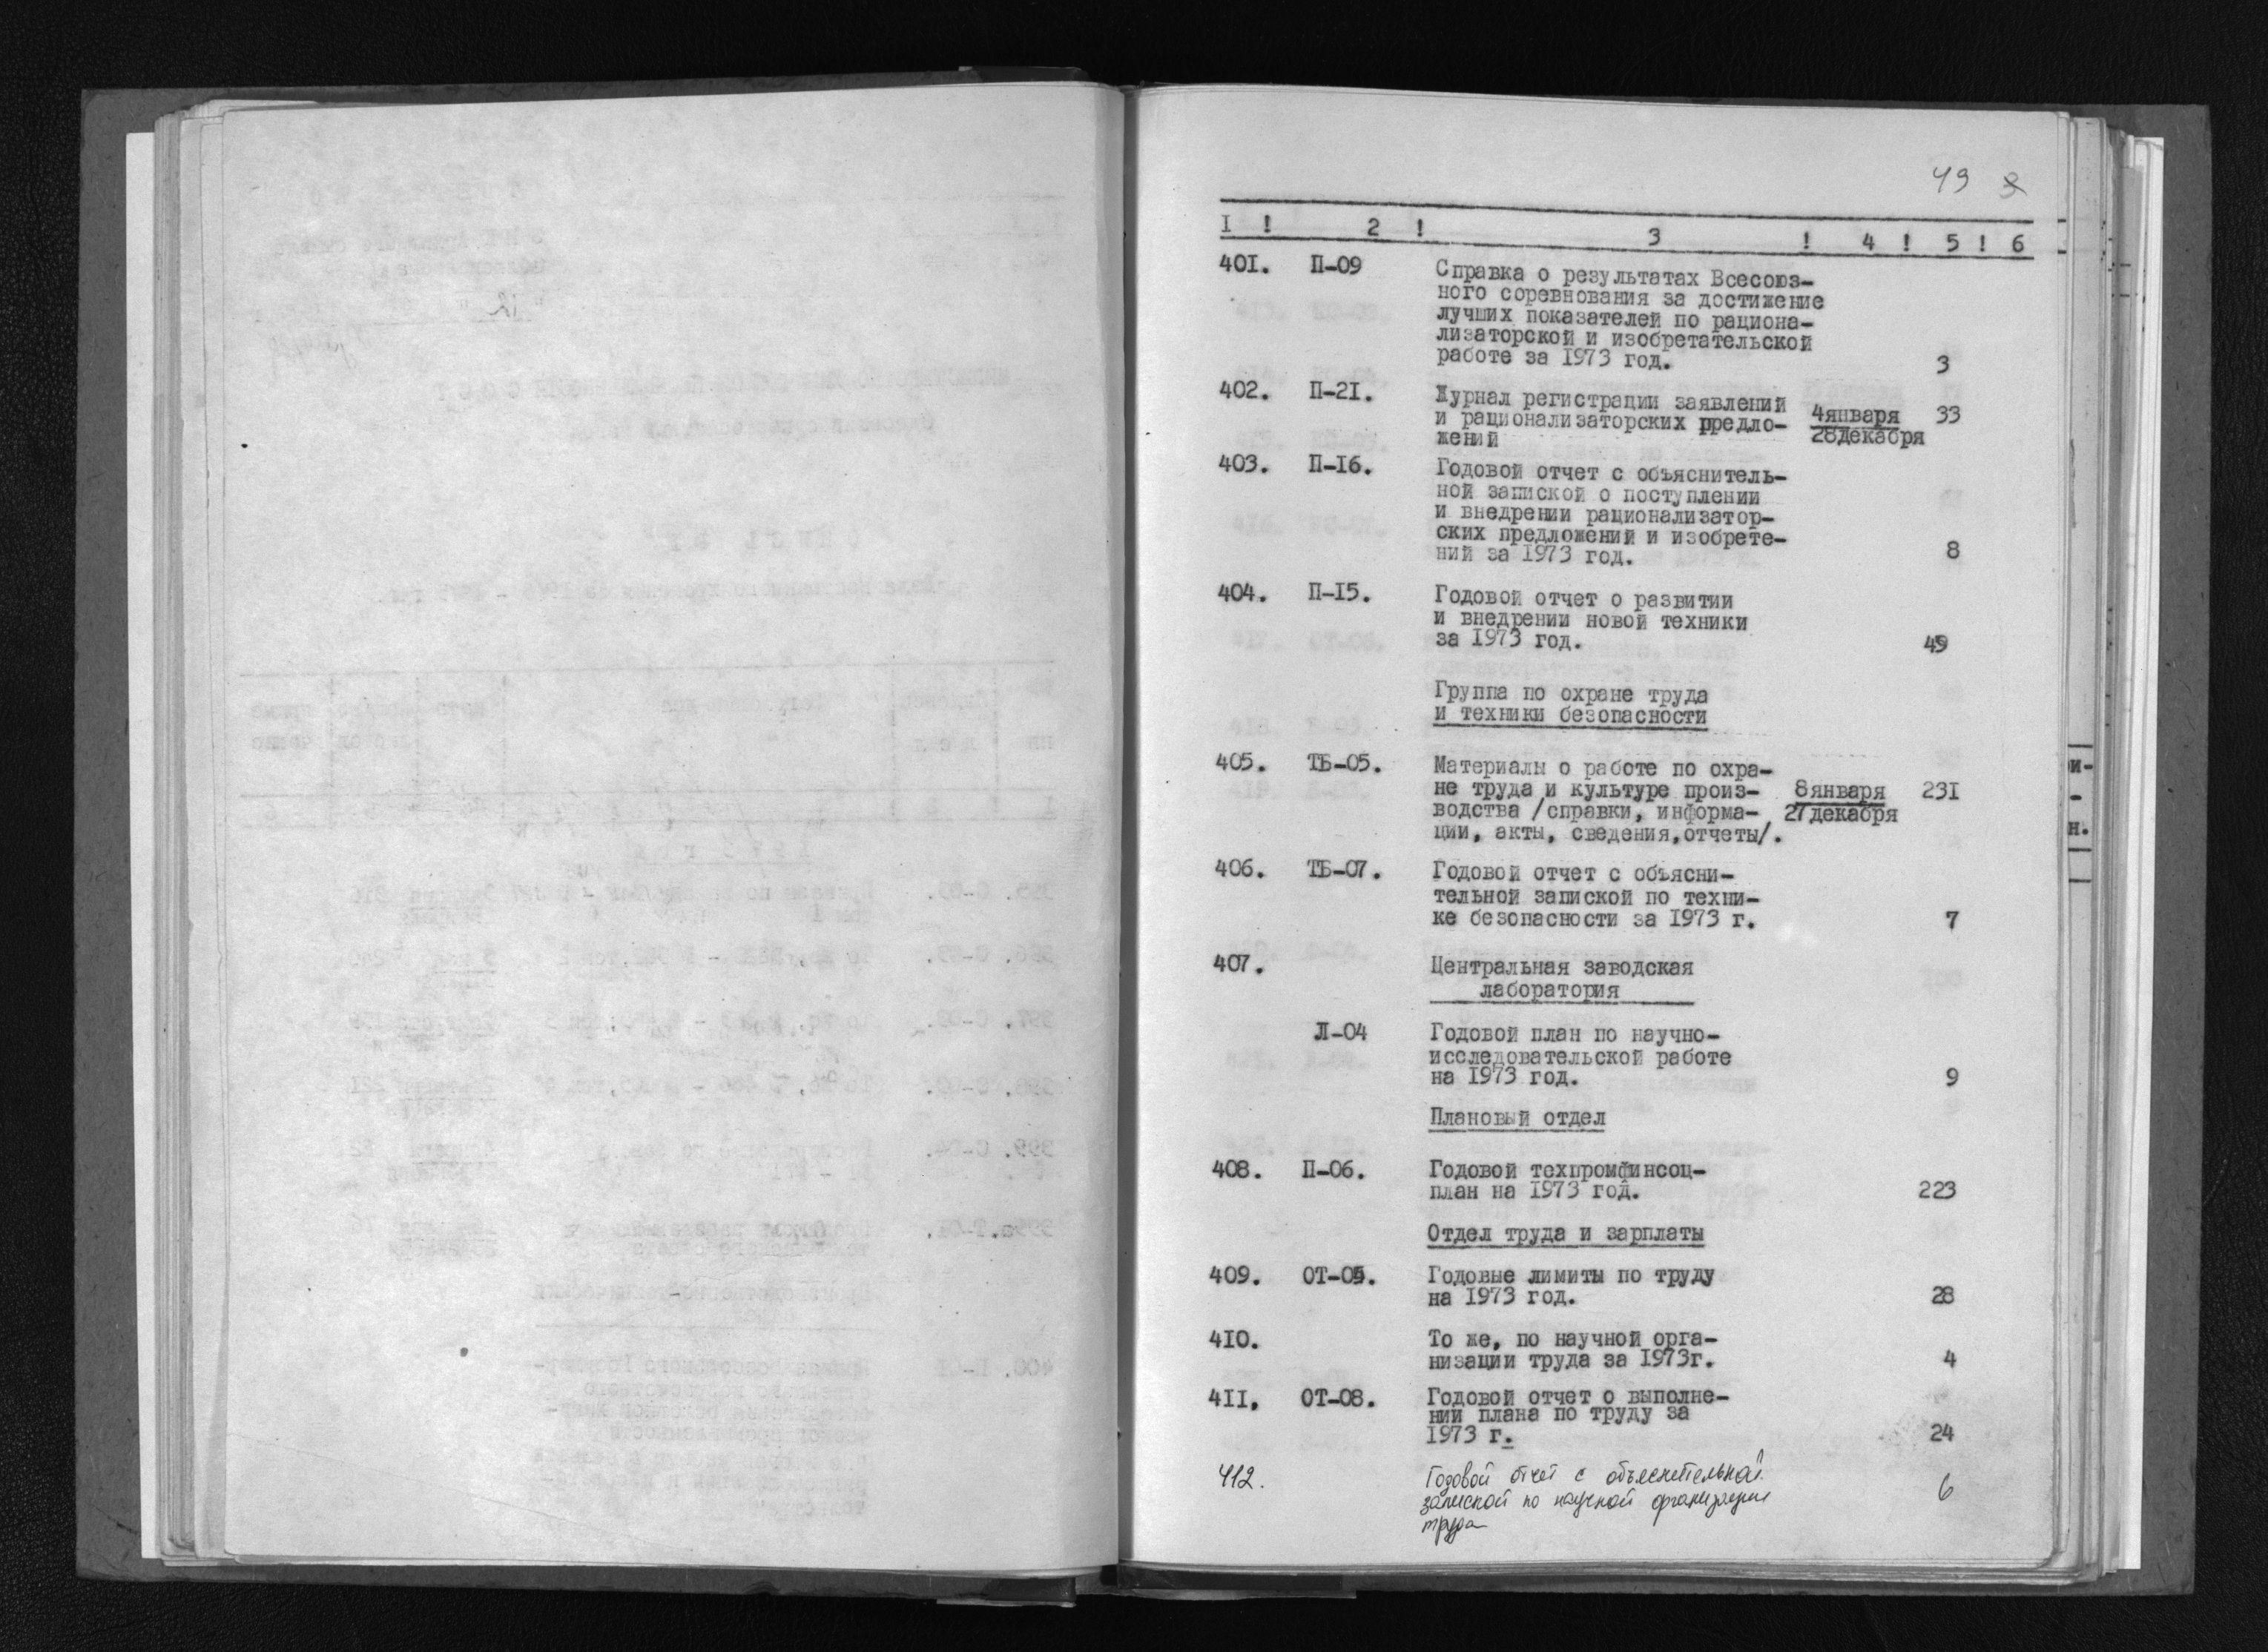 49
I ! 2 ! 3 ! 4 ! 5 ! 6
401. П-09 Справка о результатах Всесоюз-
ного соревнования за достижение
лучших показателей по рациона-
лизаторской и изобретательской
работе за 1973 год. 3
402. П-21. Журнал регистрации заявлений
и рационализаторских предло- 4января 33
жений 28декабря
403. П-16. Годовой отчет с объяснитель-
ной запиской о поступлении
и внедрении рационализатор-
ских предложений и изобрете-
ний за 1973 год. 8
404. П-15. Годовой отчет о развитии
и внедрении новой техники
за 1973 год. 49
Группа по охране труда
и техники безопасности
405. ТБ-05. Материалы о работе по охра-
не труда и культуре произ- 8января 231
водства /справки, информа- 27декабря
ции, акты, сведения,отчеты/.
406. ТБ-07. Годовой отчет с объясни-
тельной запиской по техни-
ке безопасности за 1973 г. 7
407. Центральная заводская
лаборатория
Л-04 Годовой план по научно-
исследовательской работе
на 1973 год. 9
Плановый отдел
408. П-06. Годовой техпромфинсоц-
план на 1973 год. 223
Отдел труда и зарплаты
409. ОТ-05. Годовые лимиты по труду
на 1973 год. 28
410. То же, по научной орга-
низации труда за 1973г. 4
411. ОТ-08. Годовой отчет о выполне-
нии плана по труду за
1973 г. 24
412. Годовой отчет с объяснительной
запиской по научной организации 6
труда